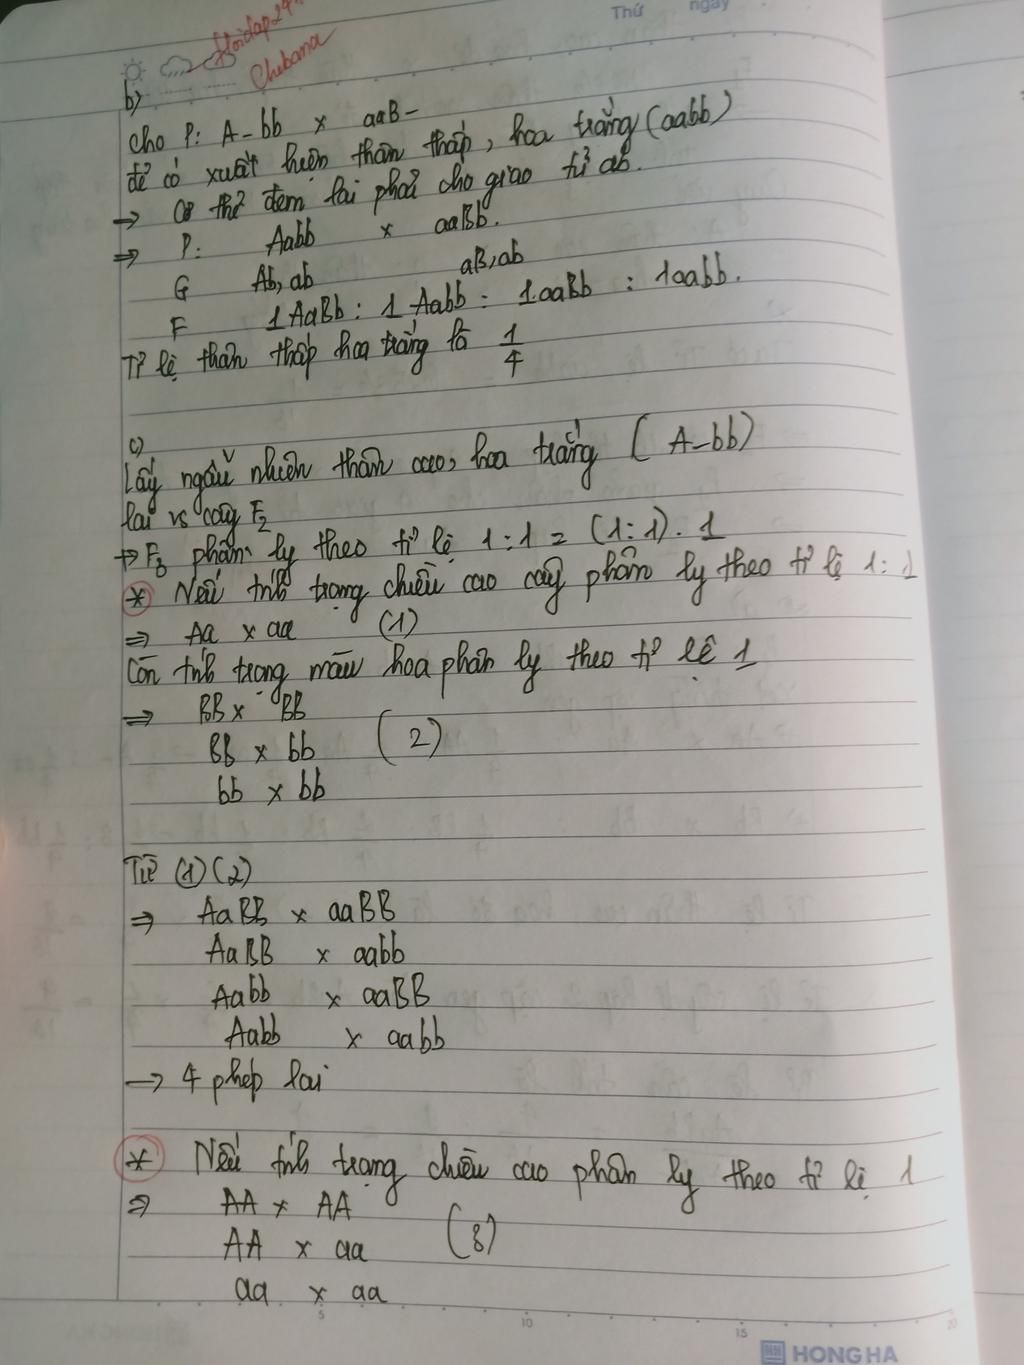 Thứ ngày
Hoidap247
Chebana
b)
Cho P: A-bb x aaB-
để có xuất hiện thân thấp, hoa trắng (aabb)
→ Cơ thể đem lai phải cho giao tử ab.
⇒ P: Aabb x aaBb.
G Ab, ab aB, ab
F 1AaBb : 1 Aabb : 1aaBb : 1aabb.
Tỉ lệ thân thấp hoa trắng là 1/4
c)
Lấy ngẫu nhiên thân cao, hoa trắng (A-bb)
lai vs cây F2
→ F3 phân ly theo tỉ lệ 1:1 = (1:1).1
* Nếu tính trạng chiều cao cây phân ly theo tỉ lệ 1:1
⇒ Aa x aa (1)
Còn tính trạng màu hoa phân ly theo tỉ lệ 1
⇒ BB x BB
Bb x bb (2)
bb x bb
Từ (1)(2)
⇒ AaBB x aaBB
AaBB x aabb
Aabb x aaBB
Aabb x aabb
→ 4 phép lai
* Nếu tính trạng chiều cao phân ly theo tỉ lệ 1
⇒ AA x AA
AA x aa (3)
aa x aa
5 10 15 20
HONG HA